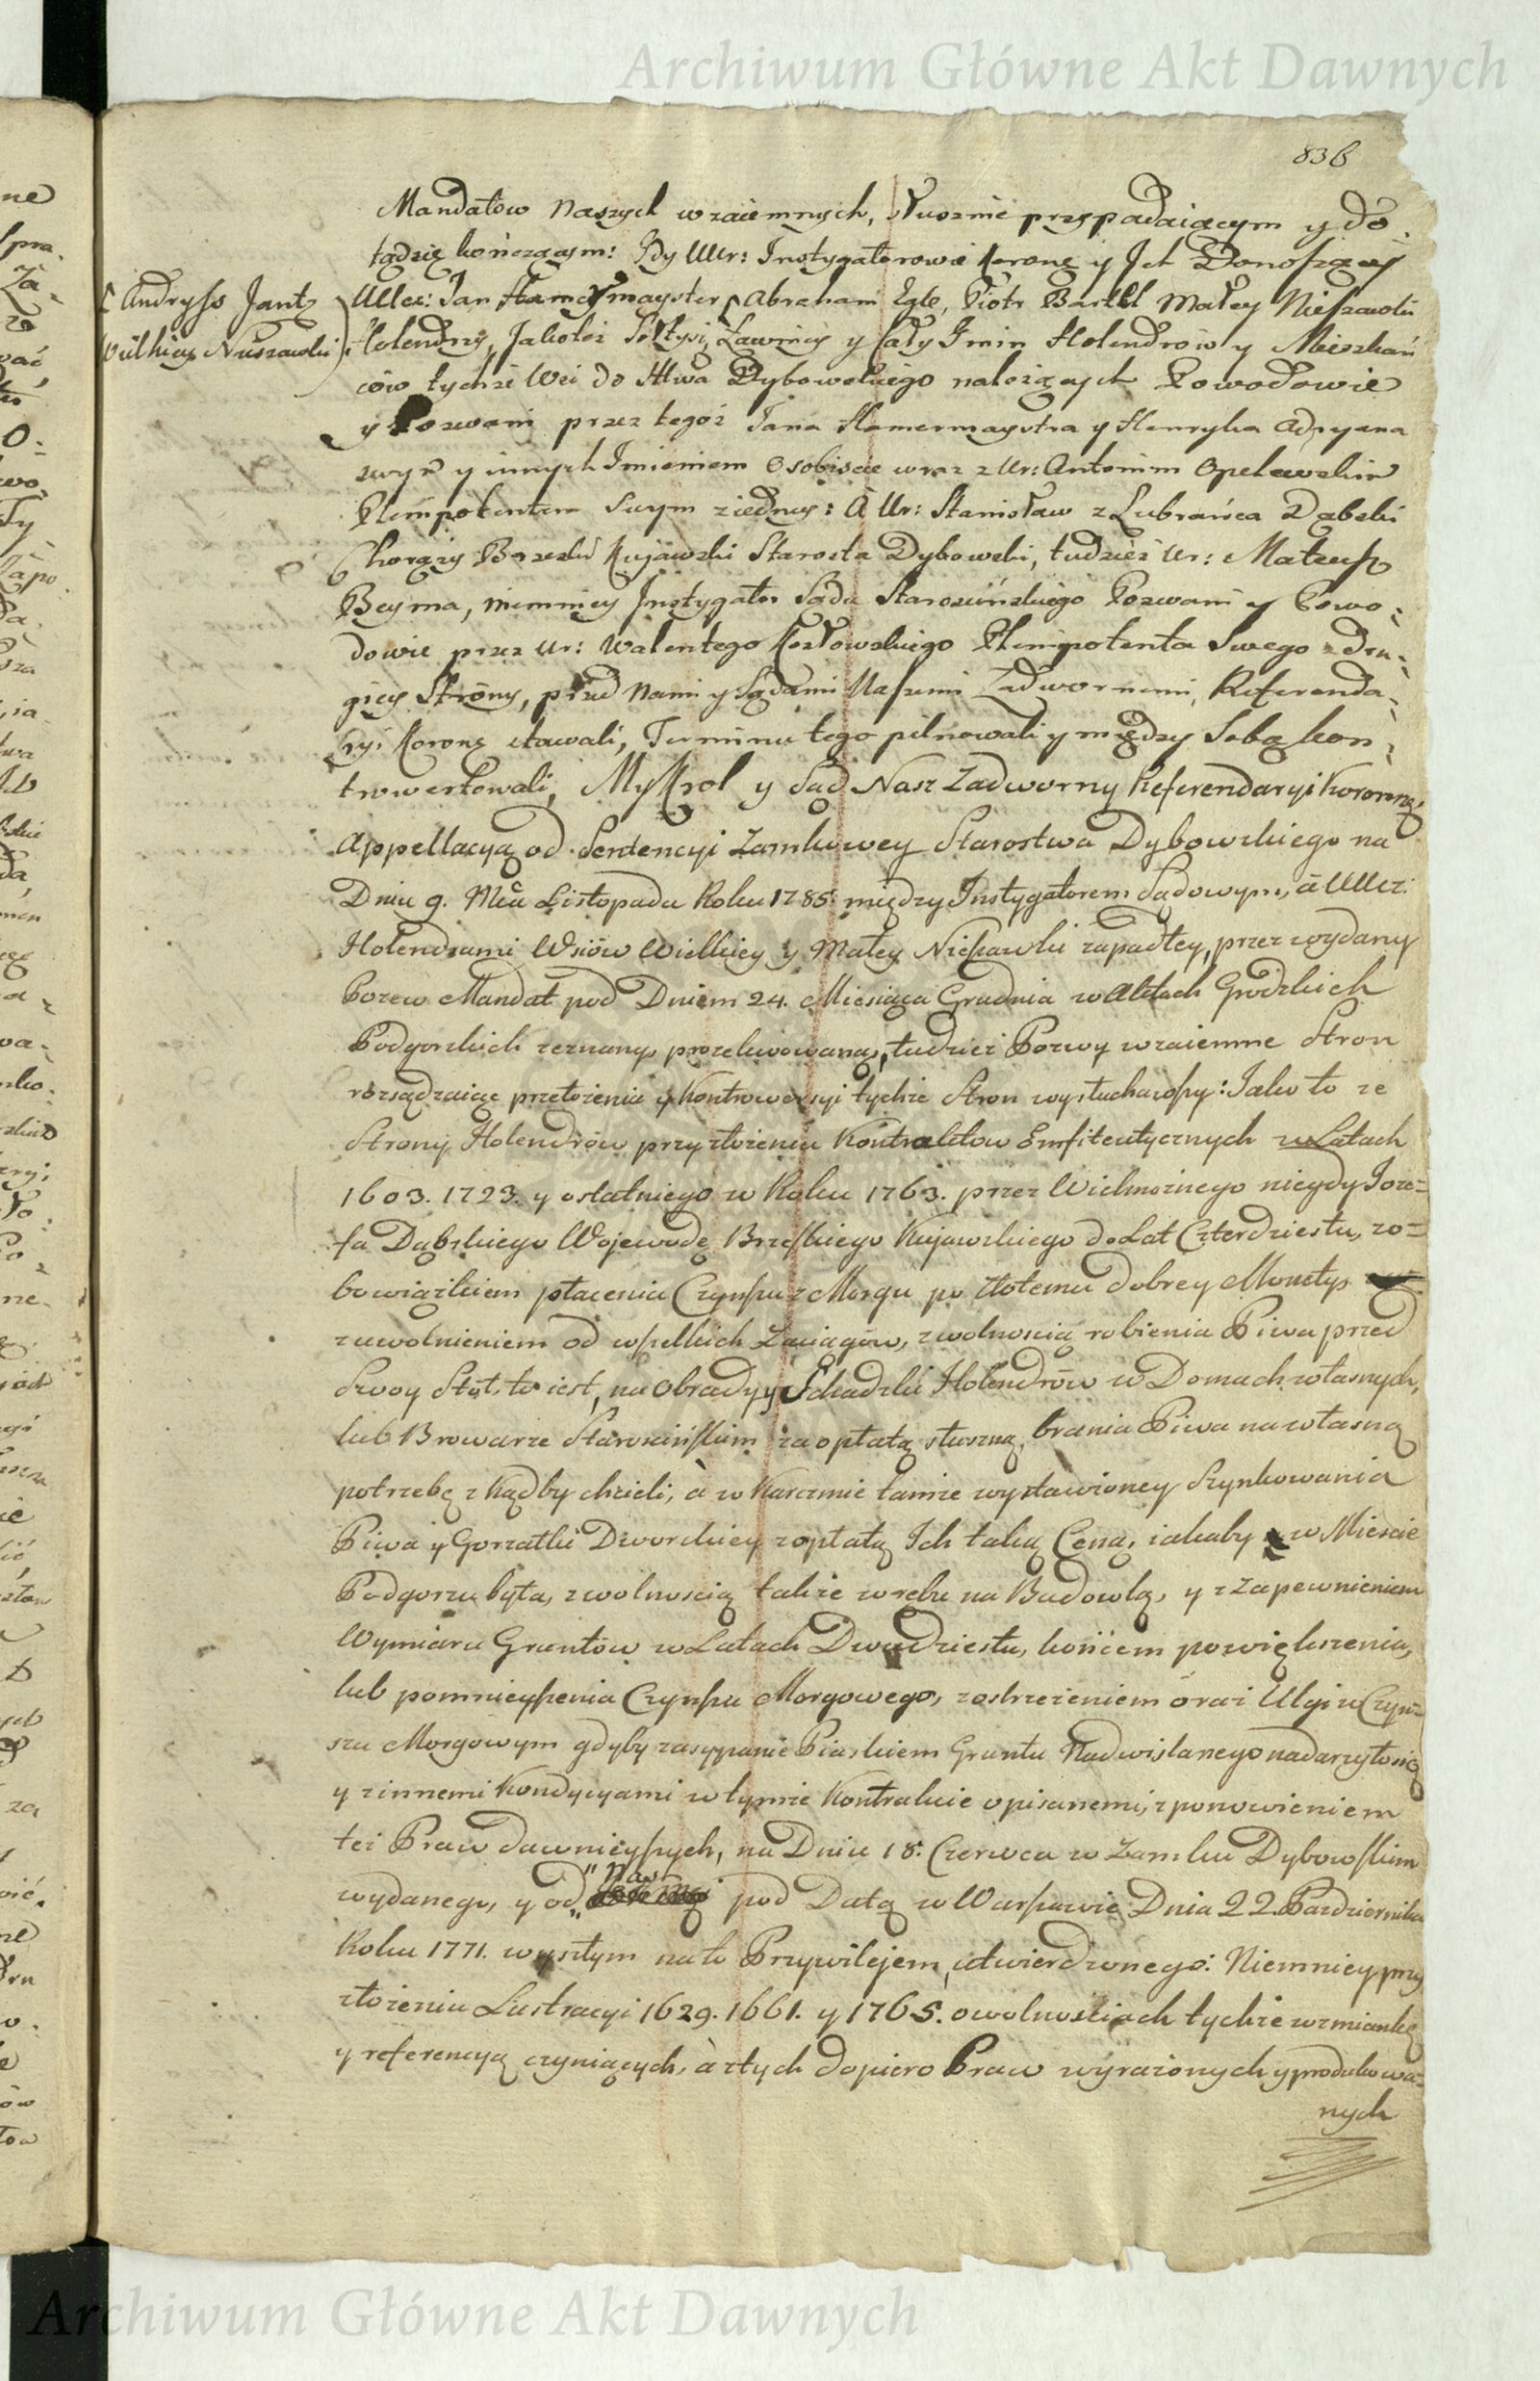 Archiwum Główne Akt Dawnych
836
Mandatow Naszych wzaiemnych, słusznie przypadaiącym y do=
tądsię kończącym: Gdy UUr: Instygatorowie Koronę y Jch Donoszący
Andryss Jantz
Wielkiey Nieszawki
UUcz: Jan Hamermayster Abraham Egle, Piotr Bartel Małey Nieszawki
Holendrzy, Jakoteż Sołtysi, Ławnicy y Cały Gmin Holendrów y Mieszkań
ców tychże Wsi do Sttwa Dybowskiego należących Powodowie
y Pozwani przez tegoż Jana Hamermaystra y Henryka Adryana
swym y innych Jmieniem Osobiscie wraz z Ur: Antonim Opelewskim
Plenipotentem Swym ziedney: A Ur: Stanisław z Lubrańca Dąbski
Chorąży Brzeski Kujawski Starosta Dybowski, tudzież Ur: Mateusz
Beyma, niemniey Jnstygator Sądu Starościńskiego Pozwani y Powo=
dowie przez Ur: Walentego Kozłowskiego Plenipotenta Swego zdru=
giey Strony, przed Nami y Sądami Naszemi Zadwornemi Referenda=
ryi Koronę stawali, Terminu tego pilnowali y między Sobą kon=
trowertowali, My Krol y Sąd Nasz Zadworny Referendaryi Koronney
Appellacyą od Sentencyi Zamkowey Starostwa Dybowskiego na
Dniu 9. Mca Listopada Roku 1785 między Jnstygatorem Sądowym, á UUcz:
Holendrami Wsiów Wielkiey y Małey Nieszawki zapadłey, przez wydany
Pozew Mandat pod Dniem 24. Miesiąca Grudnia w Aktach Grodzkich
Podgorskich zeznany, prozekwowaną, tudzież Pozwy wzaiemne Stron
rozsądzaiąc przełożenia y Kontrowersyi tychże Stron wysłuchawszy: Jako to ze
Strony Holendrów przy złożeniu Kontraktow Emfiteutycznych w Latach
1603. 1723. y ostatniego w Roku 1763. przez Wielmożnego niegdy Joze=
fa Dąbskiego Wojewodę Brzeskiego Kujawskiego do Lat Czterdziestu, zo=
bowiązkiem płacenia Czynszu z Morgu po Złotemu dobrey Monety,
zuwolnieniem od wszelkich Zaciągow, zwolnoscią robienia Piwa przed
Swoy Stół, to iest, na Obrady y Schadzki Holendrów w Domach własnych,
lub Browarze Starościńskim za opłatą słuszną, brania Piwa na własną
potrzebę zkądby chcieli, á w Karczmie tamże wystawioney Szynkowania
Piwa y Gorzałki Dworskiey zopłatą Jch taką Ceną, iakaby w Miescie
Podgorzu była, zwolnoscią także wrębu na Budowlą, y z Zapewnieniem
Wymiaru Gruntów w Latach Dwudziestu, końcem powiększenia,
lub pomnieyszenia Czynszu Morgowego, zostrzeżeniem óraz Ulgi w Czyn=
szu Morgowym gdyby zasypanie Piaskiem Gruntu Nadwislanego nadarzyłosię
y zinnemi Kondycyami w tymże Kontrakcie opisanemi, zponowieniem
też Praw dawnieyszych, na Dniu 18. Czerwca w Zamku Dybowskim
wydanego, y od Nas pod Datą w Warszawie Dnia 22 Pazdziernika
Roku 1771. wyszłym na to Przywilejem utwierdzonego: Niemniey przy
złożeniu Lustracyi 1629. 1661. y 1765. owolnościach tychże wzmiankę
y referencyą czyniących, á ztych dopiero Praw wyrażonych y produkowa=
nych
Archiwum Główne Akt Dawnych